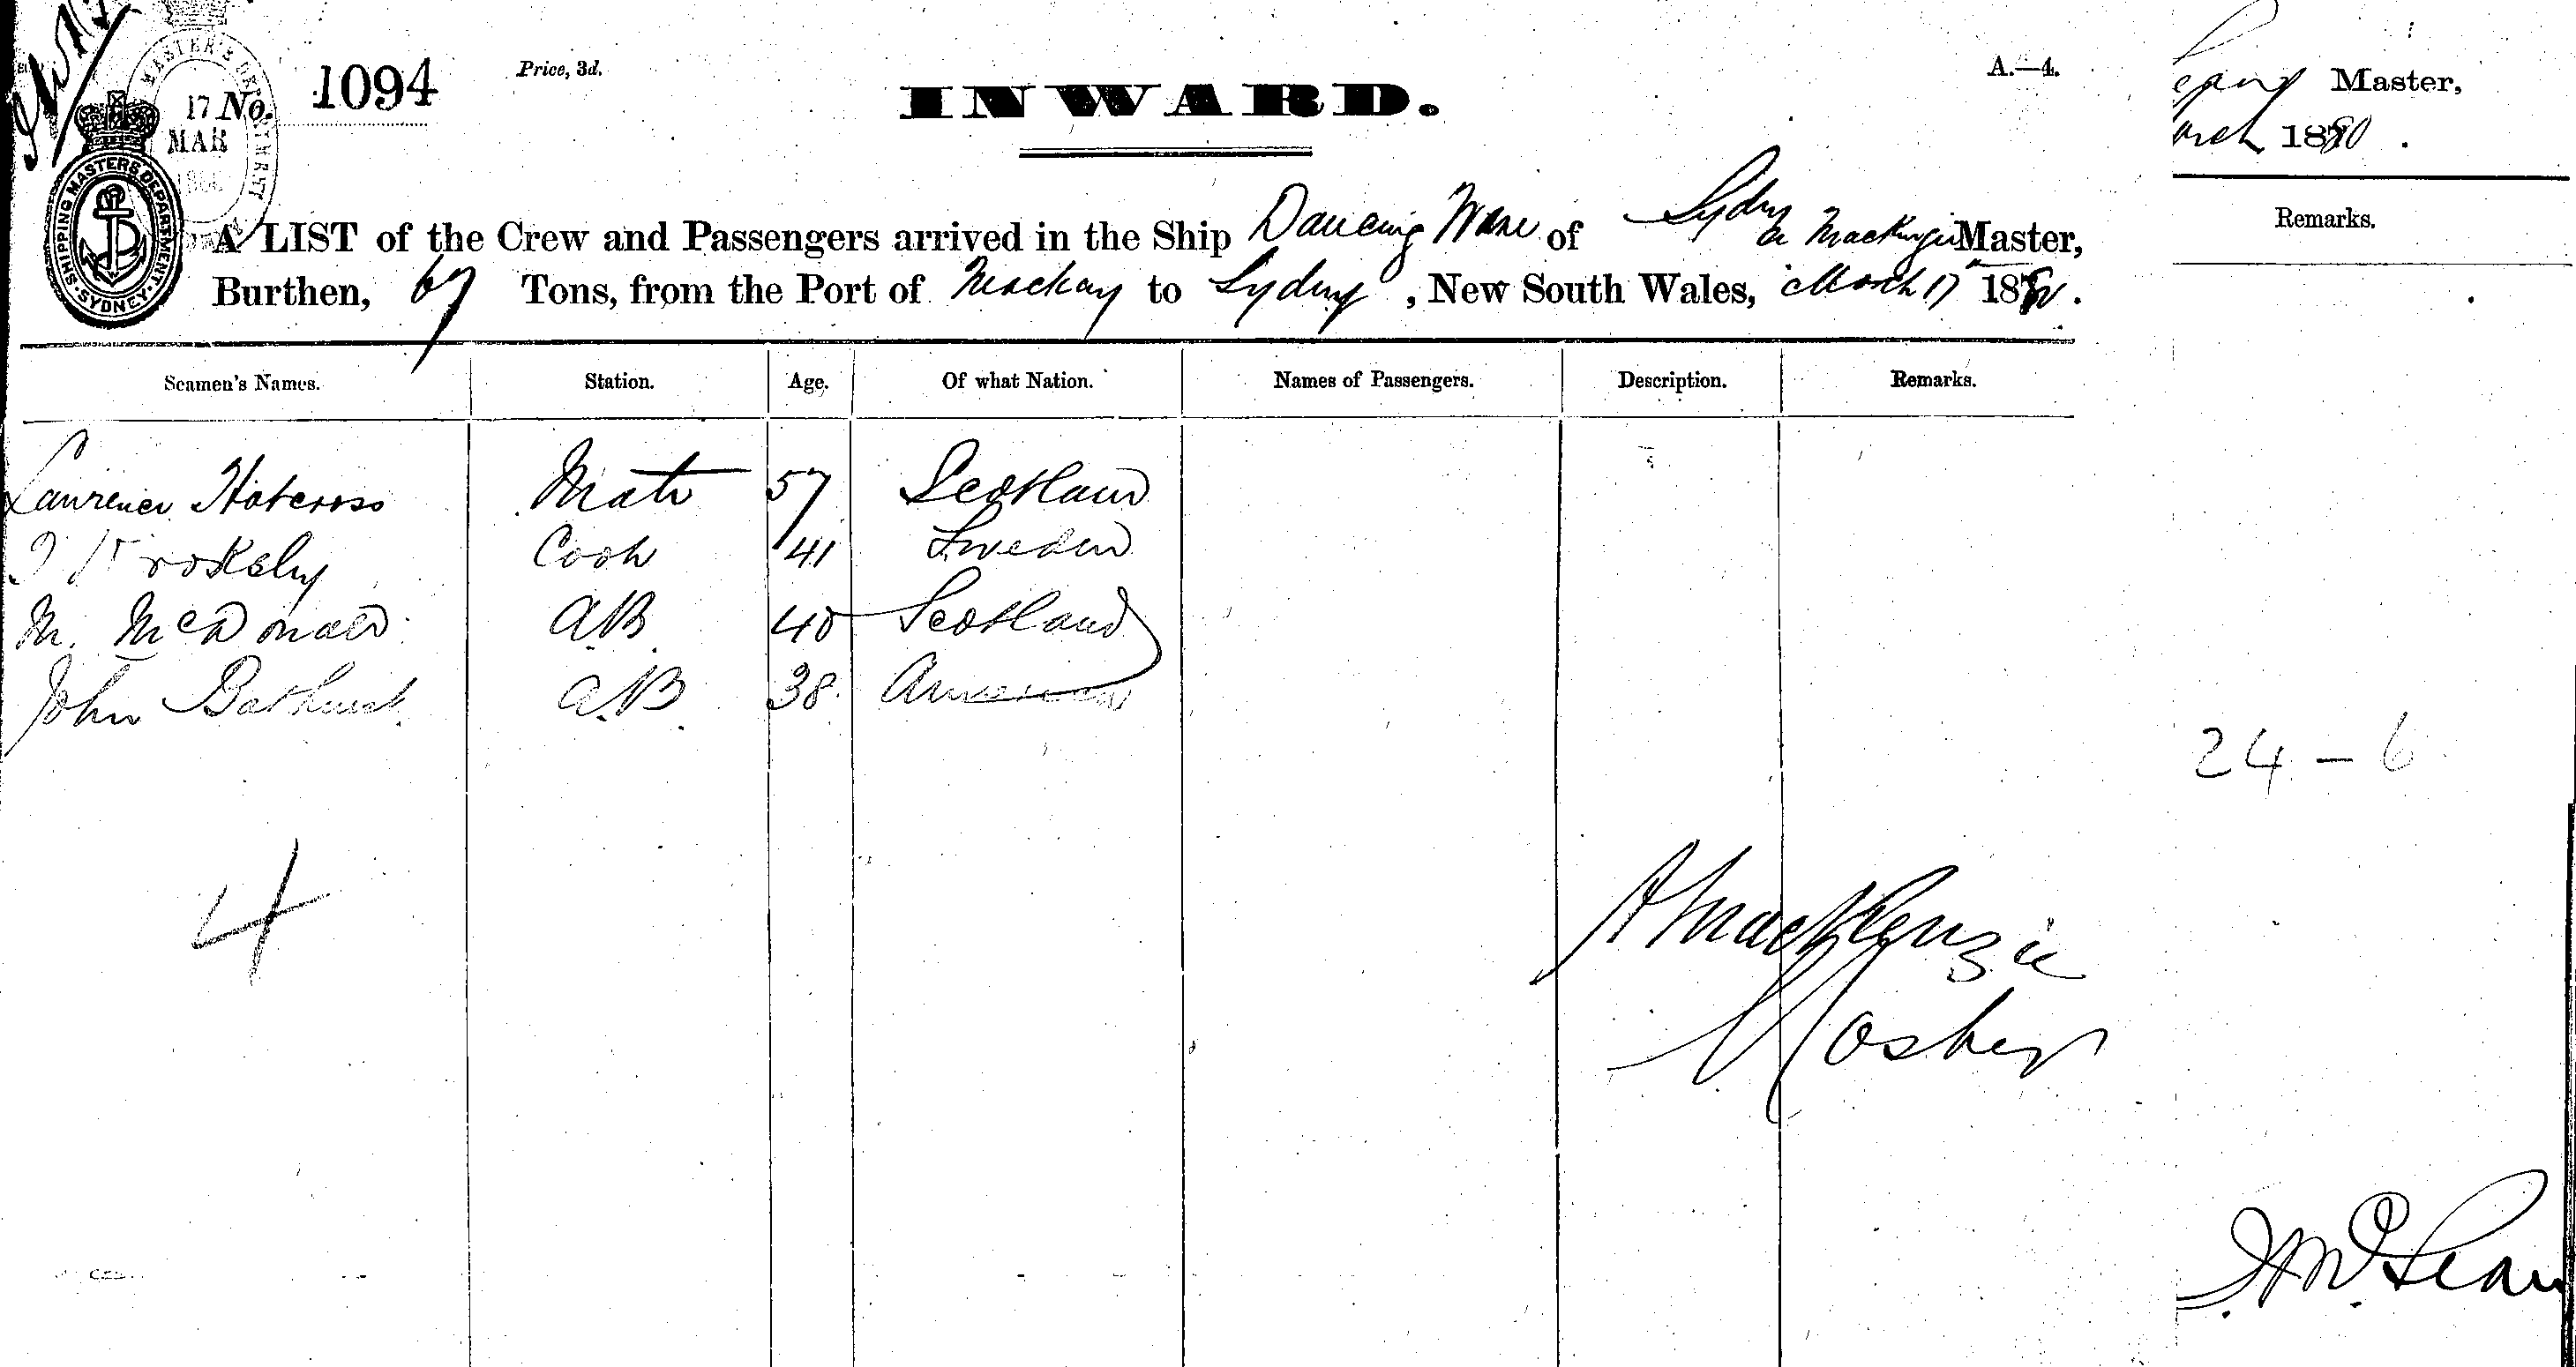 No. 1094
Price, 3d.
A.—4.
INWARD.
MASTER'S DEPARTMENT
17 MAR
SHIPPING MASTERS DEPARTMENT
SYDNEY
A LIST of the Crew and Passengers arrived in the Ship Dancing Wave of Sydney
A MacKenzie Master,
Burthen, 67 Tons, from the Port of Mackay to Sydney, New South Wales, March 17 1880.
Seamen's Names. Station. Age. Of what Nation. Names of Passengers. Description. Remarks.
Lawrence Hotcross Mate 57 Scotland
Cook 41 Sweden
M. McDonald AB 40 Scotland
John Bathurst A.B. 38 America
4
A MacKenzie
Master
Master,
arch 1880.
Remarks.
24 - 6
McLean